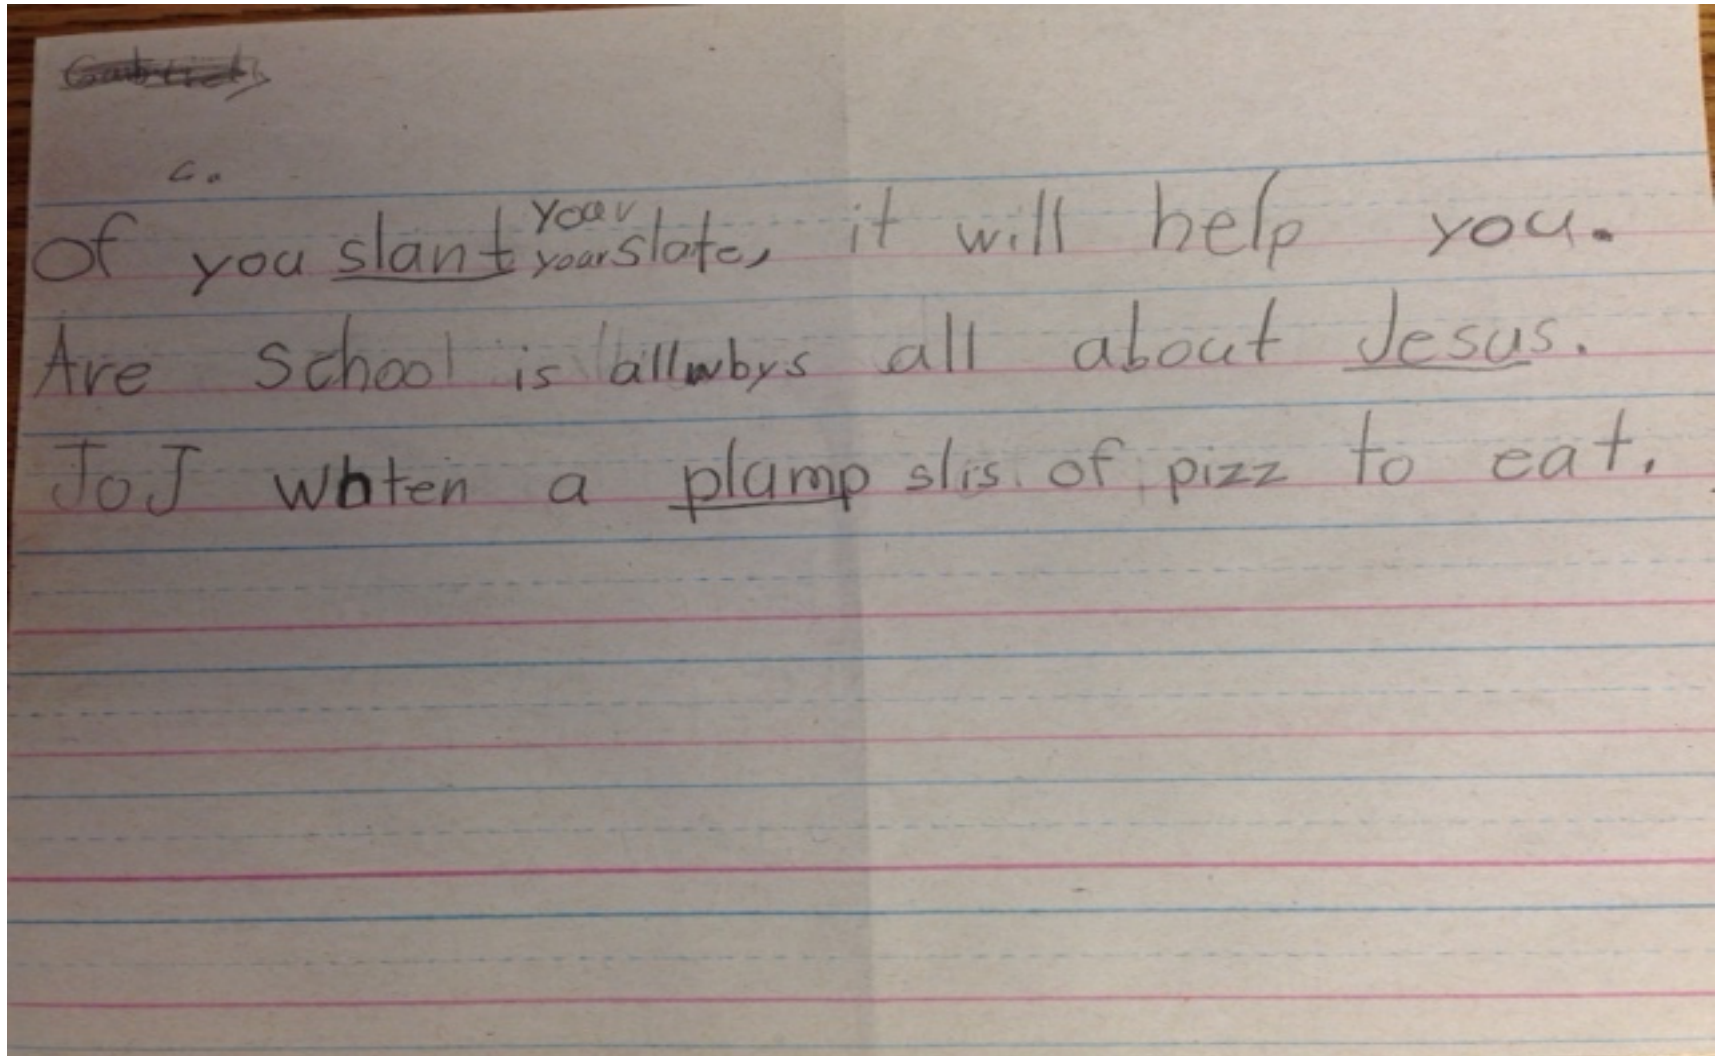 c.
your
Of you slant your slate, it will help you.
Are school is allways all about Jesus.
JoJ whten a plump slis of pizz to eat.